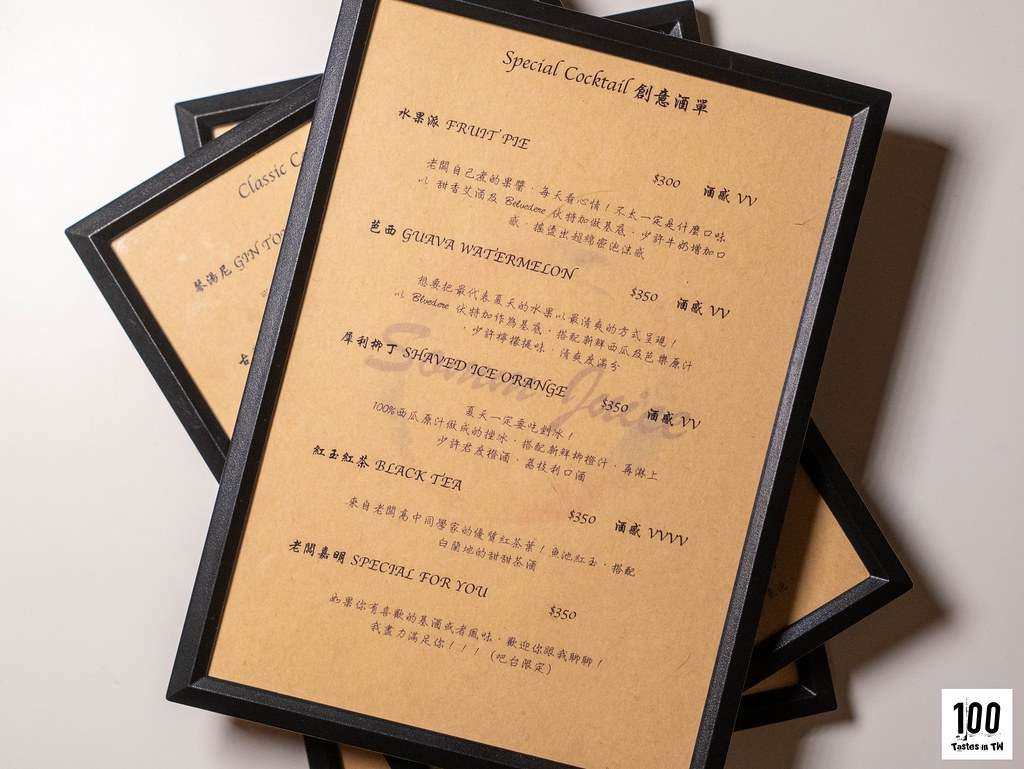 Special Cocktail 創意酒單
水果派 FRUIT PIE
$300 酒感 VV
老闆自己煮的果醬，每天看心情！不太一定是什麼口味
以 甜香艾酒及 Belvedere 伏特加做基底，少許牛奶增加口
感，搖盪出超綿密泡沫感
芭西 GUAVA WATERMELON
$350 酒感 VV
想要把最代表夏天的水果以最清爽的方式呈現！
以 Blvedere 伏特加作為基底，搭配新鮮西瓜及芭樂原汁
，少許檸檬提味，清爽度滿分
犀利柳丁 SHAVED ICE ORANGE
$350 酒感 VV
夏天一定要吃剉冰！
100%西瓜原汁做成的挫冰，搭配新鮮柳橙汁，再淋上
少許君度橙酒，荔枝利口酒
紅玉紅茶 BLACK TEA
$350 酒感 VVVV
來自老闆高中同學家的優質紅茶葉！魚池紅玉，搭配
白蘭地的甜甜茶酒
老闆嘉明 SPECIAL FOR YOU
$350
如果你有喜歡的基酒或者風味，歡迎你跟我聊聊！
我盡力滿足你！！！（吧台限定）
Classic
琴湯尼 GIN TO
Juice
100
Tastes in TW